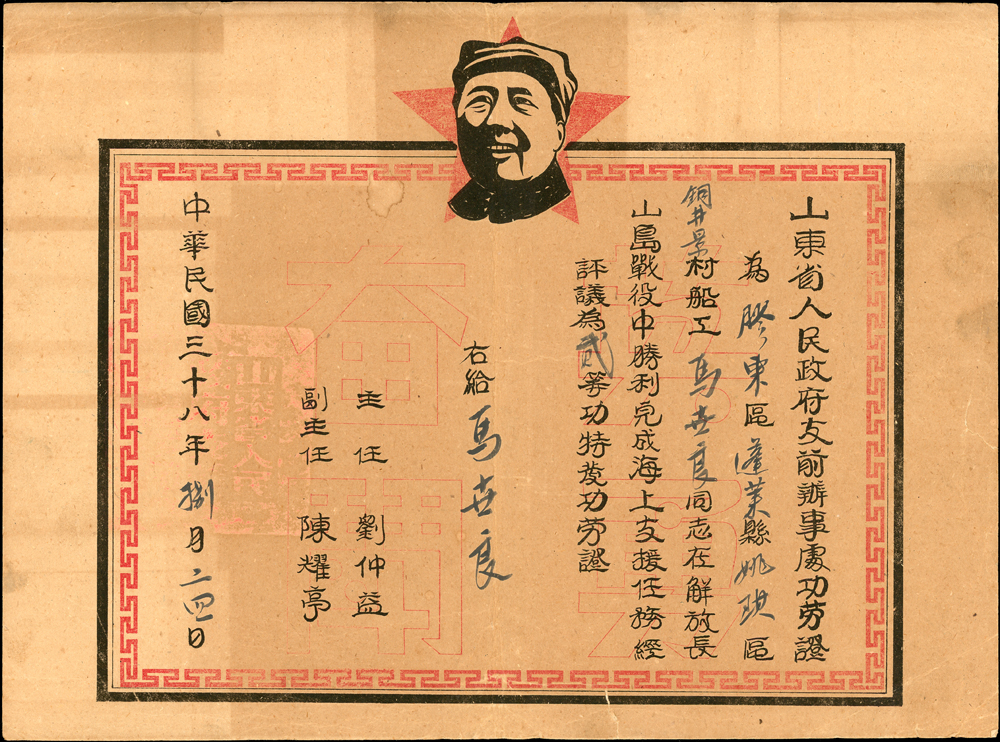 山東省人民政府支前辦事處功劳證
為膠東區蓬萊縣姚琪區
銅井景村船工馬世良同志在解放長
山島戰役中勝利完成海上支援任務經
評議為貳等功特發功劳證
右給馬世良
主任 劉仲益
副主任 陳耀亭
中華民國三十八年捌月二四日